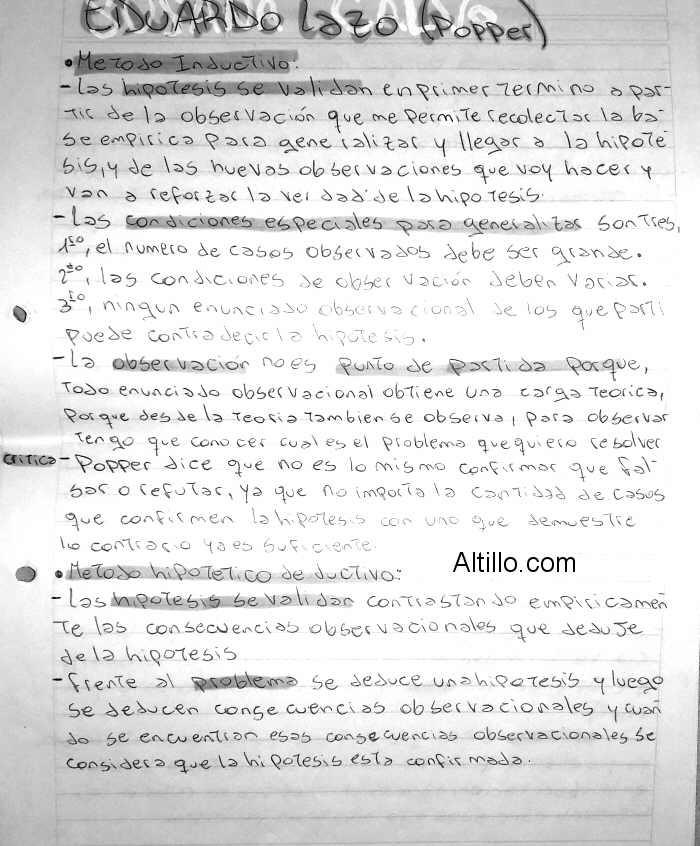 EDUARDO Lazo (Popper)
• Metodo Inductivo:
- Las hipotesis se validan en primer termino a par-
tir de la observación que me permite recolectar la ba-
se empirica para generalizar y llegar a la hipote-
sis, y de las nuevas observaciones que voy hacer y
van a reforzar la verdad de la hipotesis.
- Las condiciones especiales para generalizar son tres,
1ro, el numero de casos observados debe ser grande.
2do, las condiciones de observación deben variar.
3ro, ningun enunciado observacional de los que parti
puede contradecir la hipotesis.
- La observación no es punto de partida porque,
todo enunciado observacional obtiene una carga teorica,
porque desde la teoria tambien se observa, para observar
tengo que conocer cual es el problema que quiero resolver
critica - Popper dice que no es lo mismo confirmar que fal-
sar o refutar, ya que no importa la cantidad de casos
que confirmen la hipotesis con uno que demuestre
lo contrario ya es suficiente.
Altillo.com
• Metodo hipotetico deductivo:
- Las hipotesis se validan contrastando empiricamen-
te las consecuencias observacionales que deduje
de la hipotesis
- frente al problema se deduce una hipotesis y luego
se deducen consecuencias observacionales y cuan-
do se encuentran esas consecuencias observacionales se
considera que la hipotesis esta confirmada.